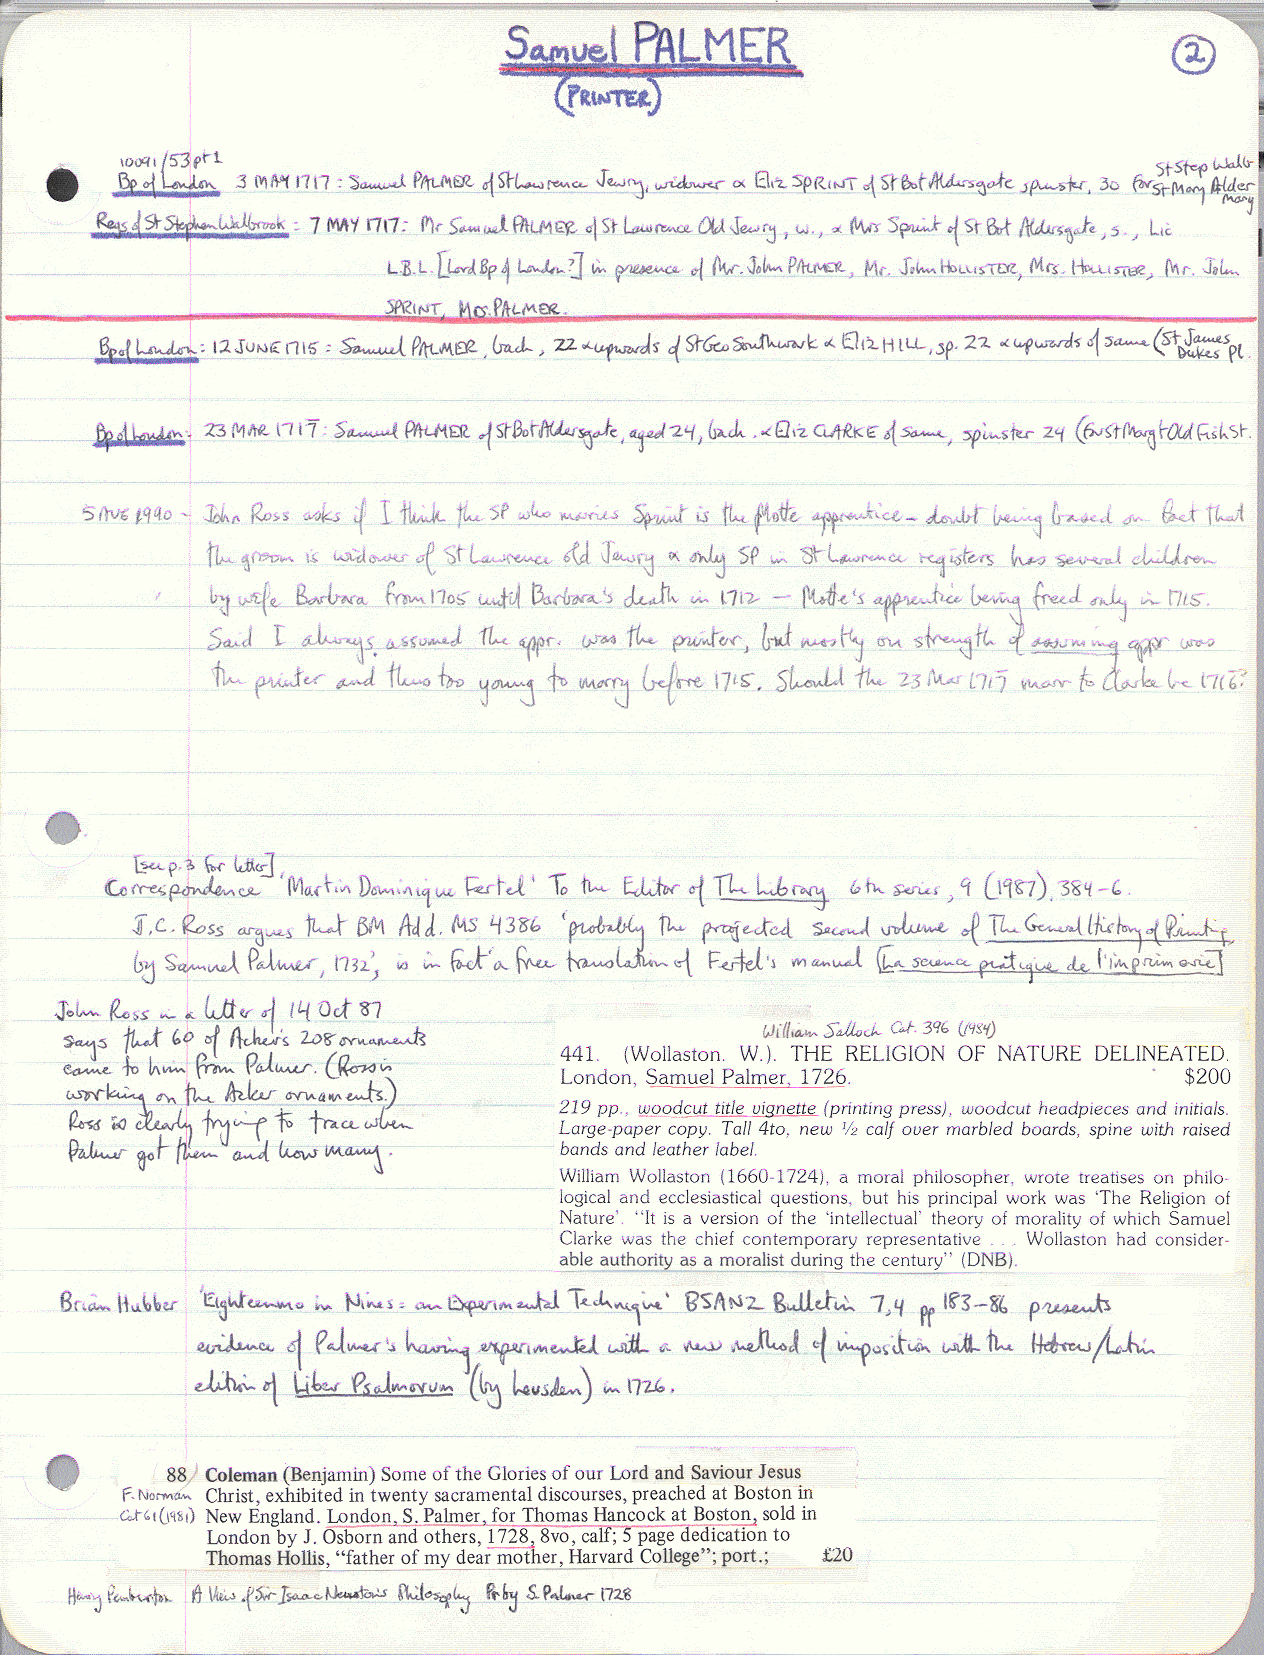 Samuel PALMER
(PRINTER)
2
10091/53 pt 1
St Step Walb
Bp of London 3 MAY 1717: Samuel PALMER of St Lawrence Jewry, widower & Eliz SPRINT of St Bot Aldersgate spinster, 30 for St Mary Alder
mary
Regs of St Stephen Walbrook: 7 MAY 1717: Mr Samuel PALMER of St Lawrence Old Jewry, w., & Mrs Sprint of St Bot Aldersgate, s., Lic
L.B.L. [Lord Bp of London?] in presence of Mr. John PALMER, Mr. John HOLLISTER, Mrs. HOLLISTER, Mr. John
SPRINT, Mrs. PALMER.
Bp of London: 12 JUNE 1715: Samuel PALMER, bach, 22 & upwards of St Geo Southwark & Eliz HILL, sp. 22 & upwards of same (St James
Dukes Pl.
Bp of London: 23 MAR 1717: Samuel PALMER of St Bot Aldersgate, aged 24, bach. & Eliz CLARKE of same, spinster 24 (for St Margt Old Fish St.
5 AUG 1990 - John Ross asks if I think the SP who marries Sprint is the Motte apprentice - doubt being based on fact that
the groom is widower of St Lawrence old Jewry & only SP in St Lawrence registers has several children
by wife Barbara from 1705 until Barbara's death in 1712 - Motte's apprentice being freed only in 1715.
Said I always assumed the appr. was the printer, but mostly on strength of assuming appr was
the printer and thus too young to marry before 1715. Should the 23 Mar 1717 marr to Clarke be 1716?
[see p.3 for letter]
Correspondence 'Martin Dominique Fertel' To the Editor of The Library 6th series, 9 (1987), 384-6.
J.C. Ross argues that BM Add. MS 4386 'probably the projected second volume of The General History of Printing,
by Samuel Palmer, 1732', is in fact a free translation of Fertel's manual [La science pratique de l'imprimerie]
John Ross in a letter of 14 Oct 87
says that 60 of Acker's 208 ornaments
came to him from Palmer. (Ross is
working on the Acker ornaments.)
Ross is clearly trying to trace when
Palmer got them and how many.
William Salloch Cat. 396 (1984)
441. (Wollaston. W.). THE RELIGION OF NATURE DELINEATED.
London, Samuel Palmer, 1726. $200
219 pp., woodcut title vignette (printing press), woodcut headpieces and initials.
Large-paper copy. Tall 4to, new ½ calf over marbled boards, spine with raised
bands and leather label.
William Wollaston (1660-1724), a moral philosopher, wrote treatises on philo-
logical and ecclesiastical questions, but his principal work was 'The Religion of
Nature'. "It is a version of the 'intellectual' theory of morality of which Samuel
Clarke was the chief contemporary representative . . . Wollaston had consider-
able authority as a moralist during the century" (DNB).
Brian Hubber 'Eighteenmo in Nines: an Experimental Technique' BSANZ Bulletin 7,4 pp 183-86 presents
evidence of Palmer's having experimented with a new method of imposition with the Hebrew/Latin
edition of Liber Psalmorum (by Leusden) in 1726.
88 Coleman (Benjamin) Some of the Glories of our Lord and Saviour Jesus
F. Norman Christ, exhibited in twenty sacramental discourses, preached at Boston in
Cat 61 (1981) New England. London, S. Palmer, for Thomas Hancock at Boston, sold in
London by J. Osborn and others, 1728, 8vo, calf; 5 page dedication to
Thomas Hollis, "father of my dear mother, Harvard College"; port.; £20
Henry Pemberton A View of Sir Isaac Newton's Philosophy Pr by S. Palmer 1728